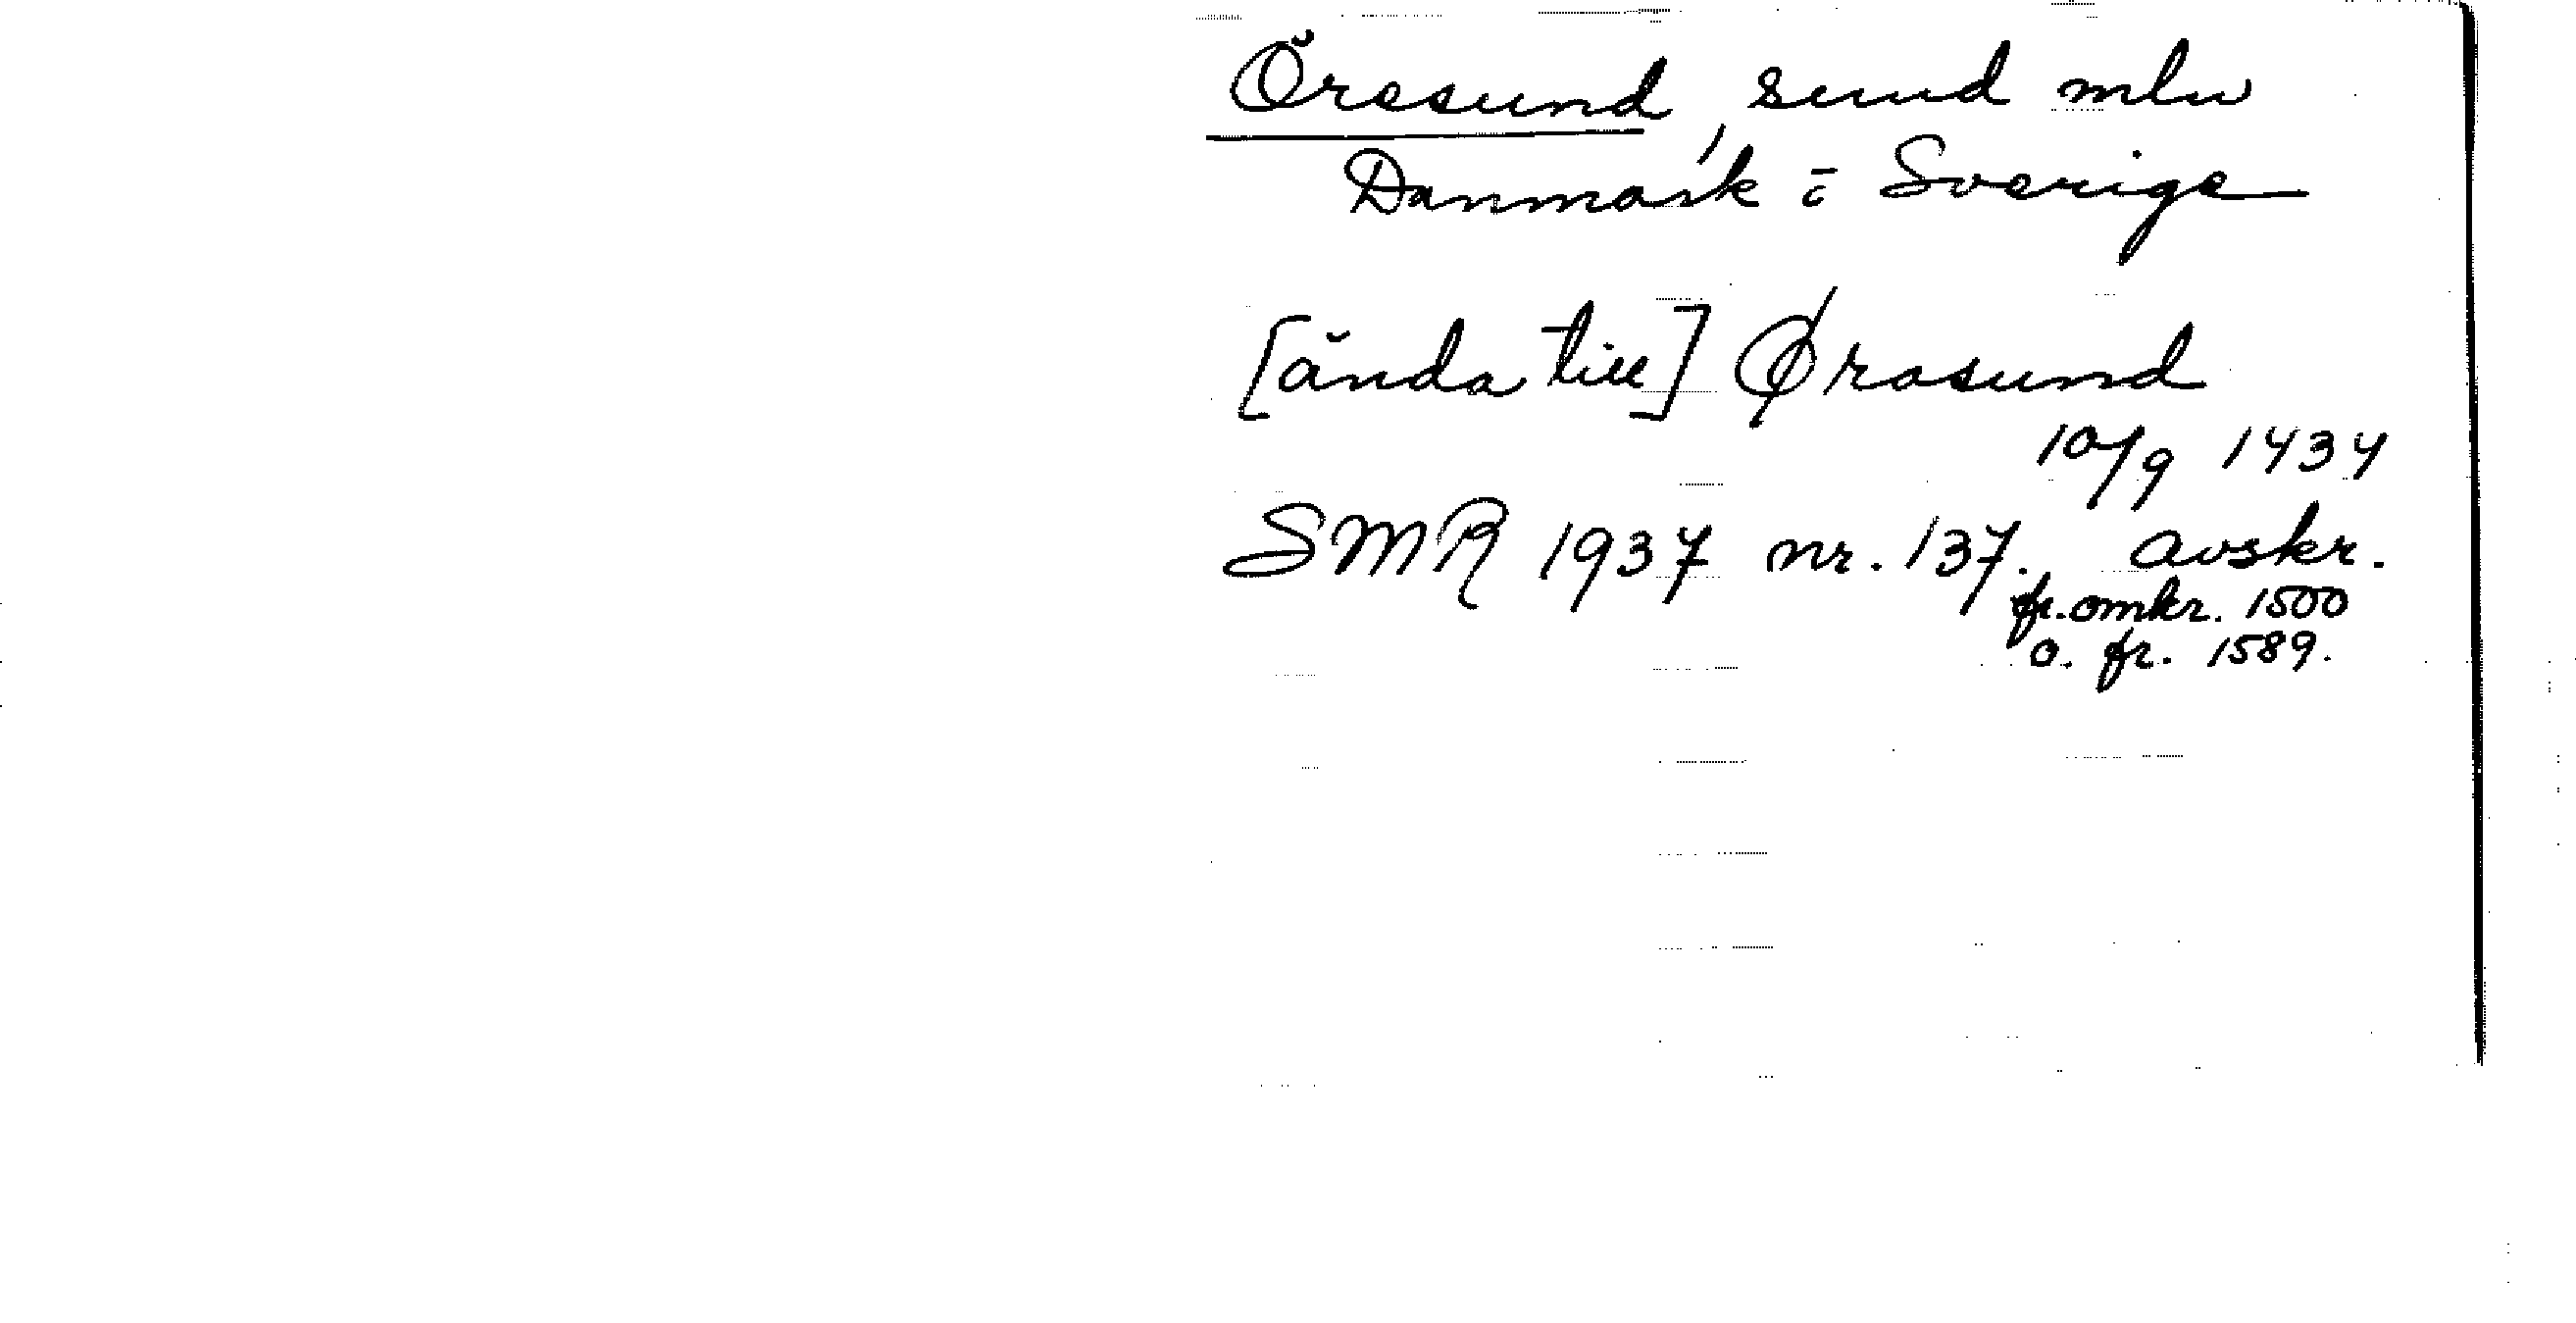 Öresund, sund mln
Danmark o Sverige
[ända till] Ørasund
10/9 1434
SMR 1937 nr. 137. avskr.
fr. omkr. 1500
o. fr. 1589.